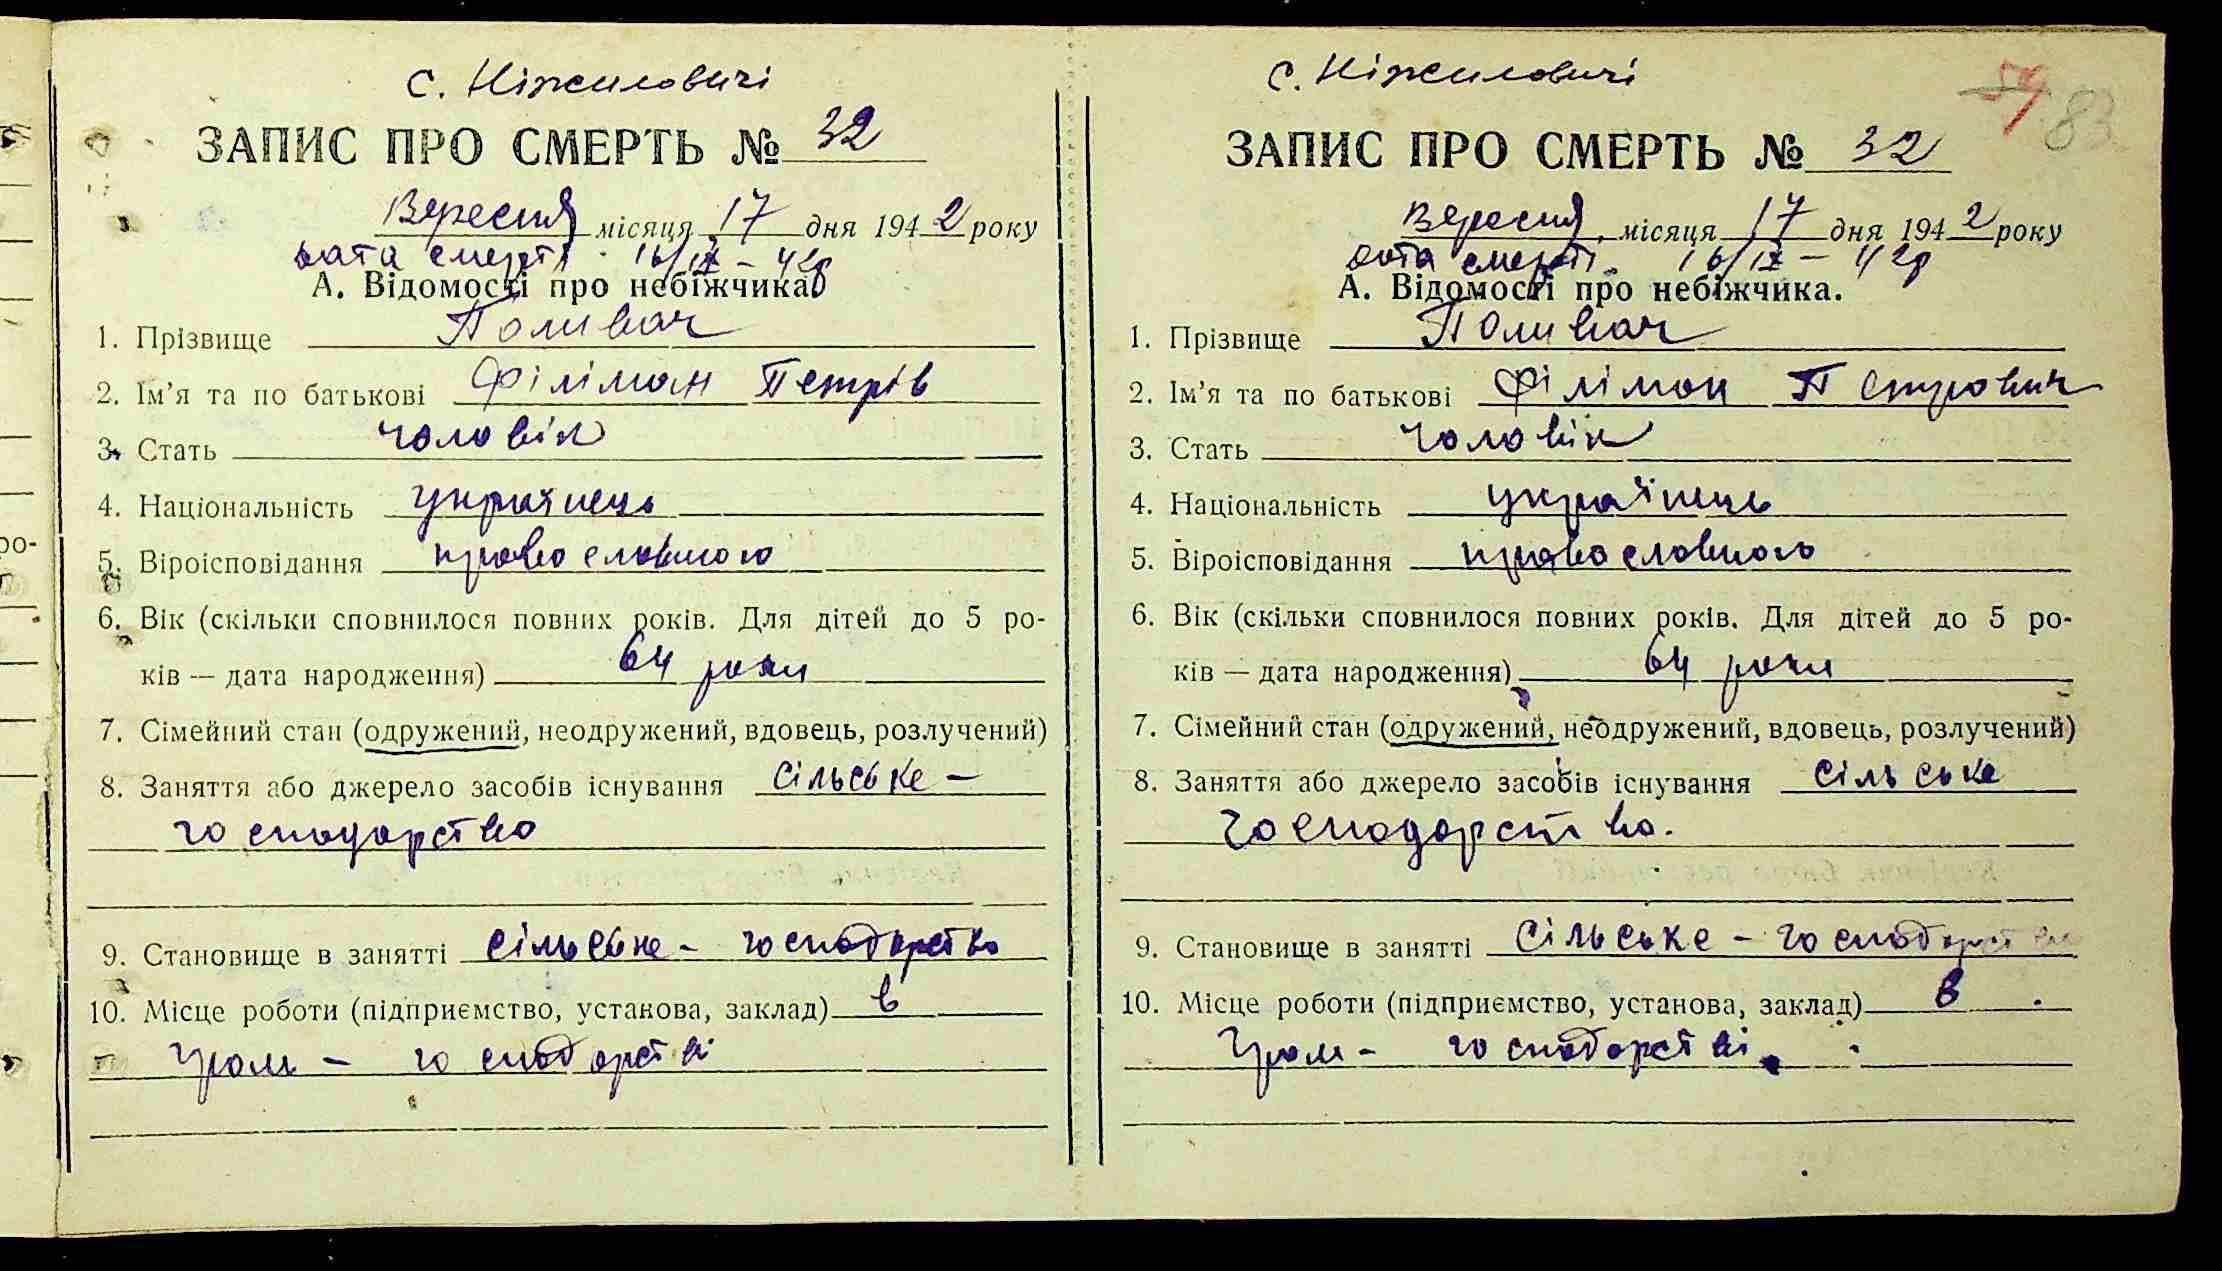 с. Ніжиловичі
ЗАПИС ПРО СМЕРТЬ № 32
Вересня місяця 17 дня 1942 року
дата смерті 16/IX – 42р
А. Відомості про небіжчика
1. Прізвище Поливач
2. Ім'я та по батькові Філімон Петрів
3. Стать чоловік
4. Національність українець
5. Віроісповідання православного
6. Вік (скільки сповнилося повних років. Для дітей до 5 ро-
ків — дата народження) 64 роки
7. Сімейний стан (одружений, неодружений, вдовець, розлучений)
8. Заняття або джерело засобів існування сільське –
господарство
9. Становище в занятті сільське – господарство
10. Місце роботи (підприємство, установа, заклад) в
Гром – господарстві
с. Ніжиловичі
54 83
ЗАПИС ПРО СМЕРТЬ № 32
Вересня місяця 17 дня 1942 року
дата смерті 16/IX – 42р
А. Відомості про небіжчика.
1. Прізвище Поливач
2. Ім'я та по батькові Філімон Петрович
3. Стать чоловік
4. Національність українець
5. Віроісповідання православного
6. Вік (скільки сповнилося повних років. Для дітей до 5 ро-
ків — дата народження) 64 роки
7. Сімейний стан (одружений, неодружений, вдовець, розлучений)
8. Заняття або джерело засобів існування сільське
господарство.
9. Становище в занятті сільське – господарство
10. Місце роботи (підприємство, установа, заклад) в
Гром – господарстві.
ро-